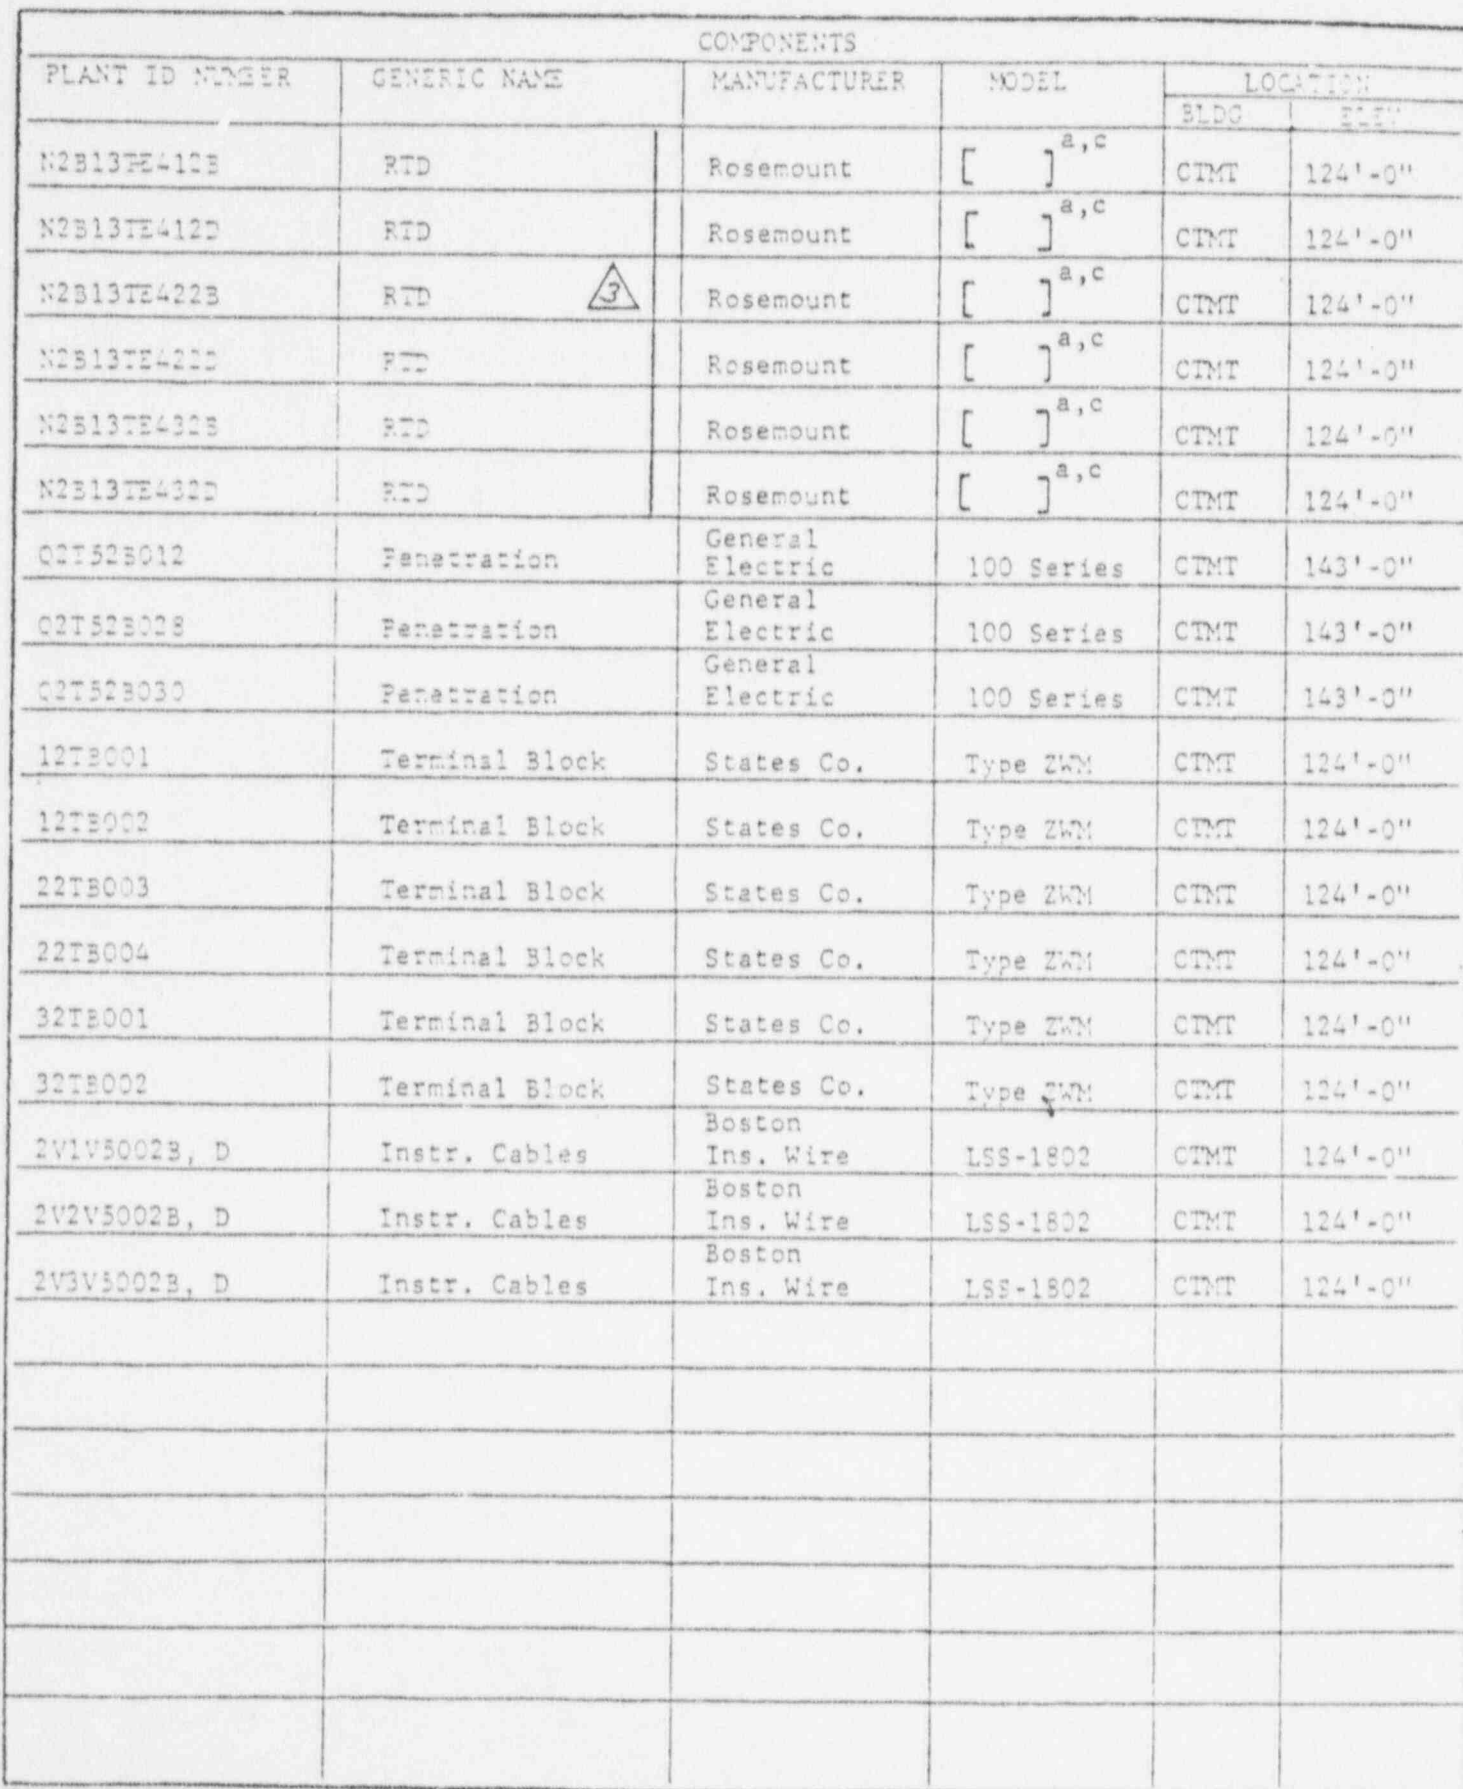 COMPONENTS
PLANT ID NUMBER GENERIC NAME MANUFACTURER MODEL LOCATION
BLDG ELEV
N2B13TE412B RTD Rosemount [ ]a,c CTMT 124'-0"
N2B13TE412D RTD Rosemount [ ]a,c CTMT 124'-0"
N2B13TE422B RTD 3 Rosemount [ ]a,c CTMT 124'-0"
N2B13TE422D RTD Rosemount [ ]a,c CTMT 124'-0"
N2B13TE432B RTD Rosemount [ ]a,c CTMT 124'-0"
N2B13TE432D RTD Rosemount [ ]a,c CTMT 124'-0"
General
Q2T52B012 Penetration Electric 100 Series CTMT 143'-0"
General
Q2T52B028 Penetration Electric 100 Series CTMT 143'-0"
General
Q2T52B030 Penetration Electric 100 Series CTMT 143'-0"
12TB001 Terminal Block States Co. Type ZWM CTMT 124'-0"
12TB002 Terminal Block States Co. Type ZWM CTMT 124'-0"
22TB003 Terminal Block States Co. Type ZWM CTMT 124'-0"
22TB004 Terminal Block States Co. Type ZWM CTMT 124'-0"
32TB001 Terminal Block States Co. Type ZWM CTMT 124'-0"
32TB002 Terminal Block States Co. Type ZWM CTMT 124'-0"
Boston
2V1V5002B, D Instr. Cables Ins. Wire LSS-1802 CTMT 124'-0"
Boston
2V2V5002B, D Instr. Cables Ins. Wire LSS-1802 CTMT 124'-0"
Boston
2V3V5002B, D Instr. Cables Ins. Wire LSS-1802 CTMT 124'-0"